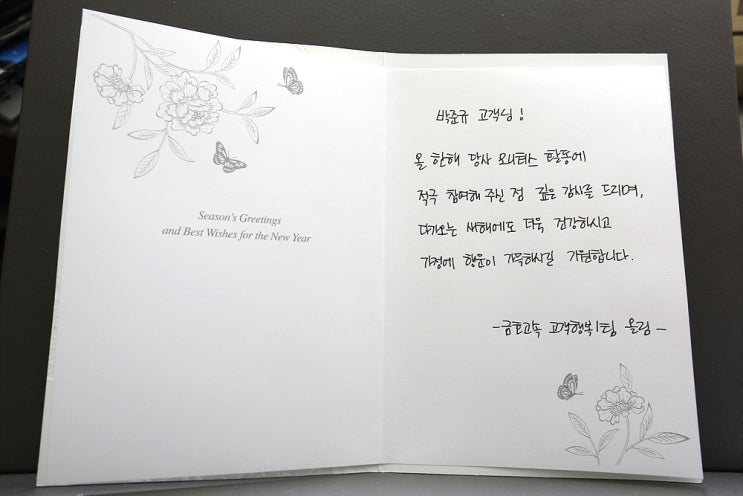 Season's Greetings
and Best Wishes for the New Year
박준규 고객님!
올 한해 당사 모니터스 활동에
적극 참여해 주신 점 깊은 감사를 드리며,
다가오는 새해에도 더욱 건강하시고
가정에 행운이 가득하시길 기원합니다.
-금호고속 고객행복1팀 올림-